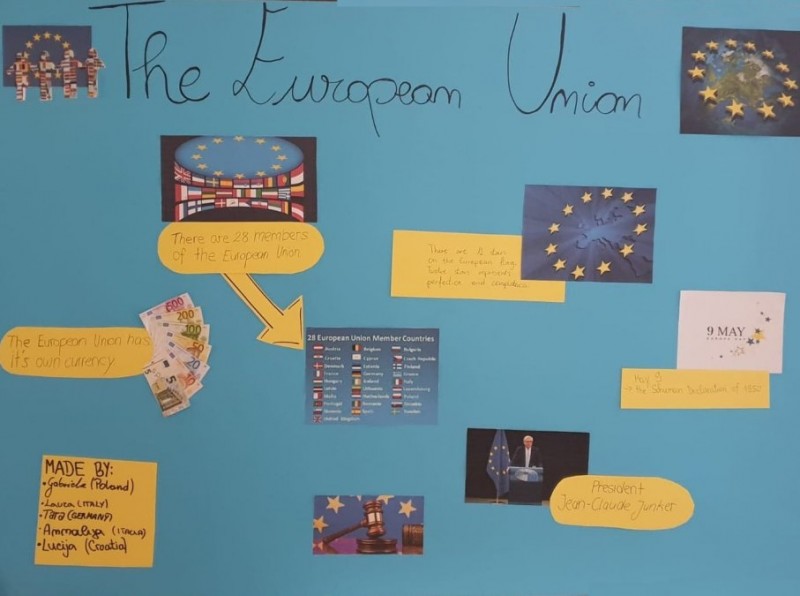 The European Union
There are 28 members
of the European Union.
There are 12 stars
on the European
Twelve stars represents
perfection and
The European Union has
it's own currency.
500
200
100
50
20
10
5
28 European Union Member Countries
Austria Belgium Bulgaria
Croatia Cyprus Czech Republic
Denmark Estonia Finland
France Germany Greece
Hungary Ireland Italy
Latvia Lithuania Luxembourg
Malta Netherlands Poland
Portugal Romania Slovakia
Slovenia Spain Sweden
United Kingdom
9 MAY
EUROPE DAY
May 9
the Declaration of 1950
President
Jean-Claude Junker
MADE BY:
• Gabriele (Poland)
• Laura (ITALY)
• (GERMANY)
• Annaliza (ITALIA)
• Lucija (Croatia)